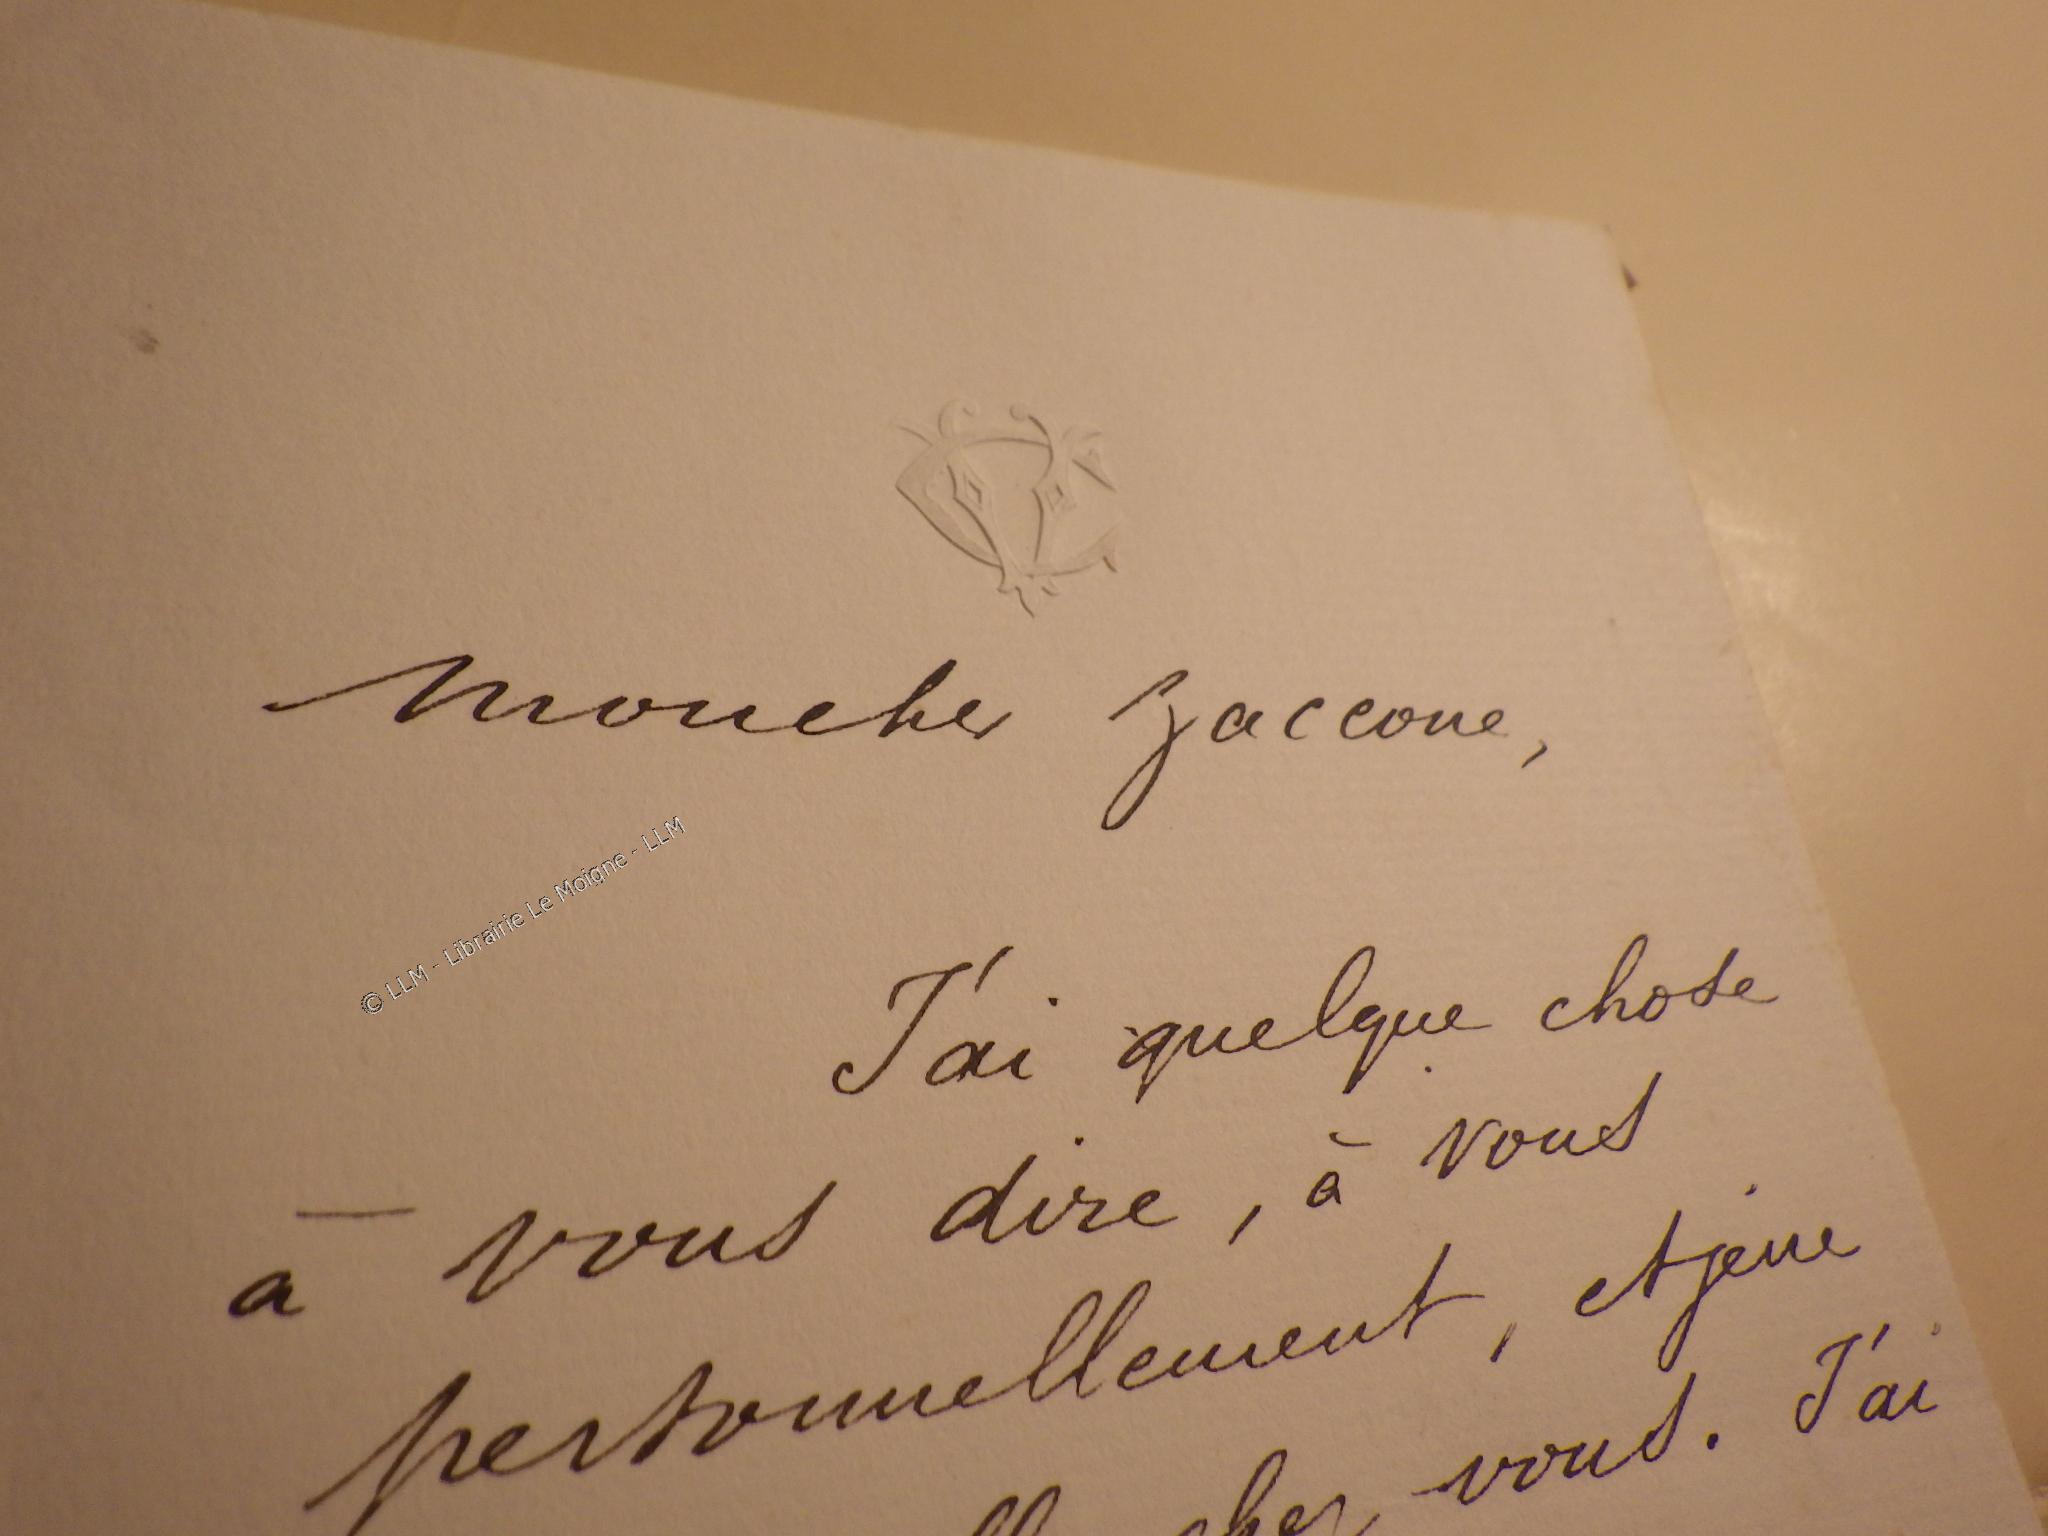 Mon cher Zaccone,
© LLM - Librairie Le Moigne - LLM
J'ai quelque chose
à vous dire, à vous
personnellement, et je ne
chez vous. J'ai